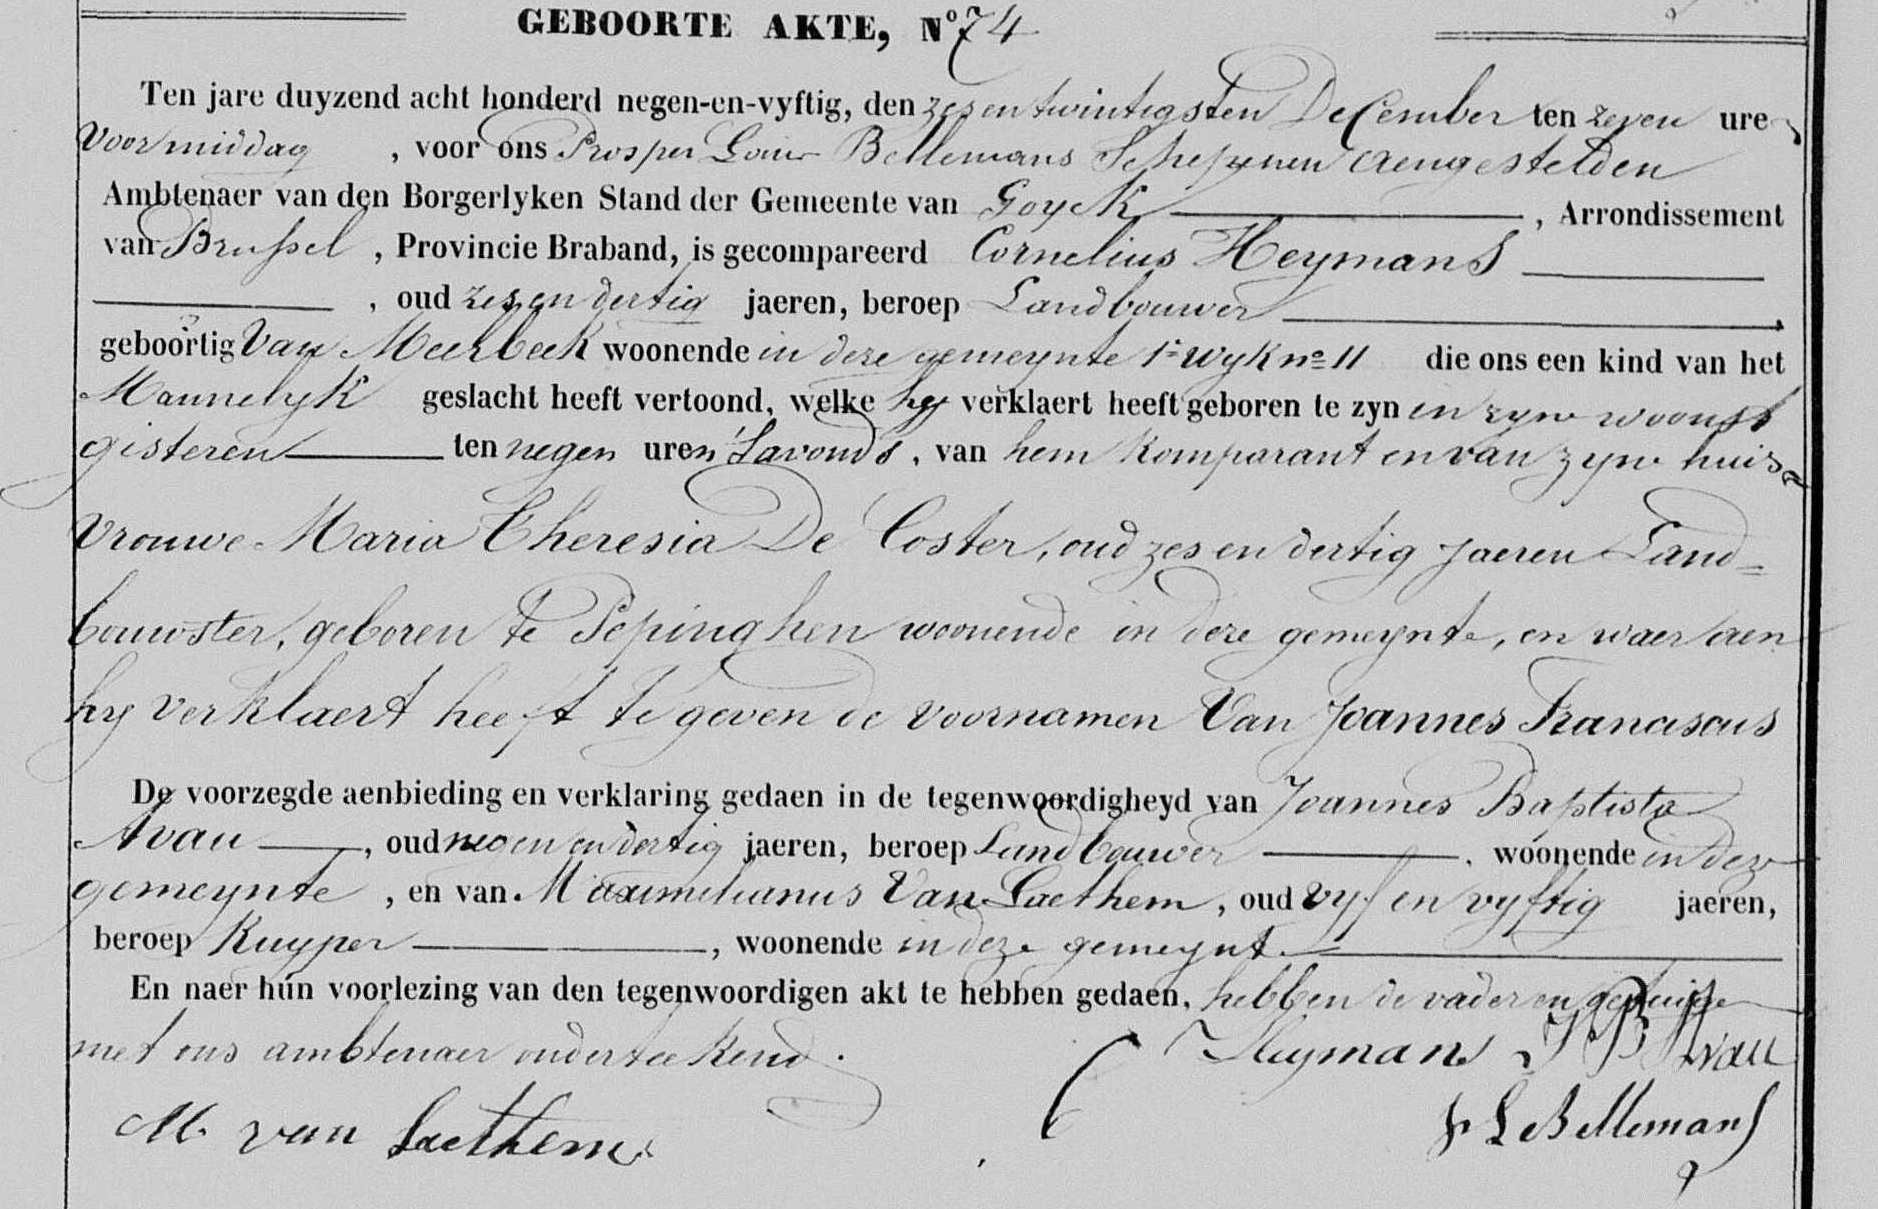 GEBOORTE AKTE, Nº 74
Ten jare duyzend acht honderd negen-en-vyftig, den zesentwintigsten December ten zeven ure
voormiddag , voor ons Prosper Louis Bellemans Schepenen aengestelden
Ambtenaer van den Borgerlyken Stand der Gemeente van Goyck , Arrondissement
van Brussel , Provincie Braband, is gecompareerd Cornelius Heymans
, oud zes en dertig jaeren, beroep Landbouwer
geboortig van Meerbeek woonende in deze gemeynte 1e wyk no 11 die ons een kind van het
Mannelyk geslacht heeft vertoond, welke hy verklaert heeft geboren te zyn in zyn woonst
gisteren ten negen uren 's avonds , van hem komparant en van zyn huis=
vrouwe Maria Theresia De Coster, oud zes en dertig jaeren Land=
bouwster, geboren te Pepinghen woonende in deze gemeynte, en waer aen
hy verklaert heeft te geven de voornamen van Joannes Franciscus
De voorzegde aenbieding en verklaring gedaen in de tegenwoordigheyd van Joannes Baptista
Avau , oud negen en dertig jaeren, beroep Landbouwer , woonende in deze
gemeynte , en van Maximilianus Van Laethem , oud vyf en vyftig jaeren,
beroep Kuyper , woonende in deze gemeynte
En naer hun voorlezing van den tegenwoordigen akt te hebben gedaen, hebben de vader en getuige
met ons ambtenaer onderteekend.
Heymans J B Avau
M. van Laethem P L Bellemans